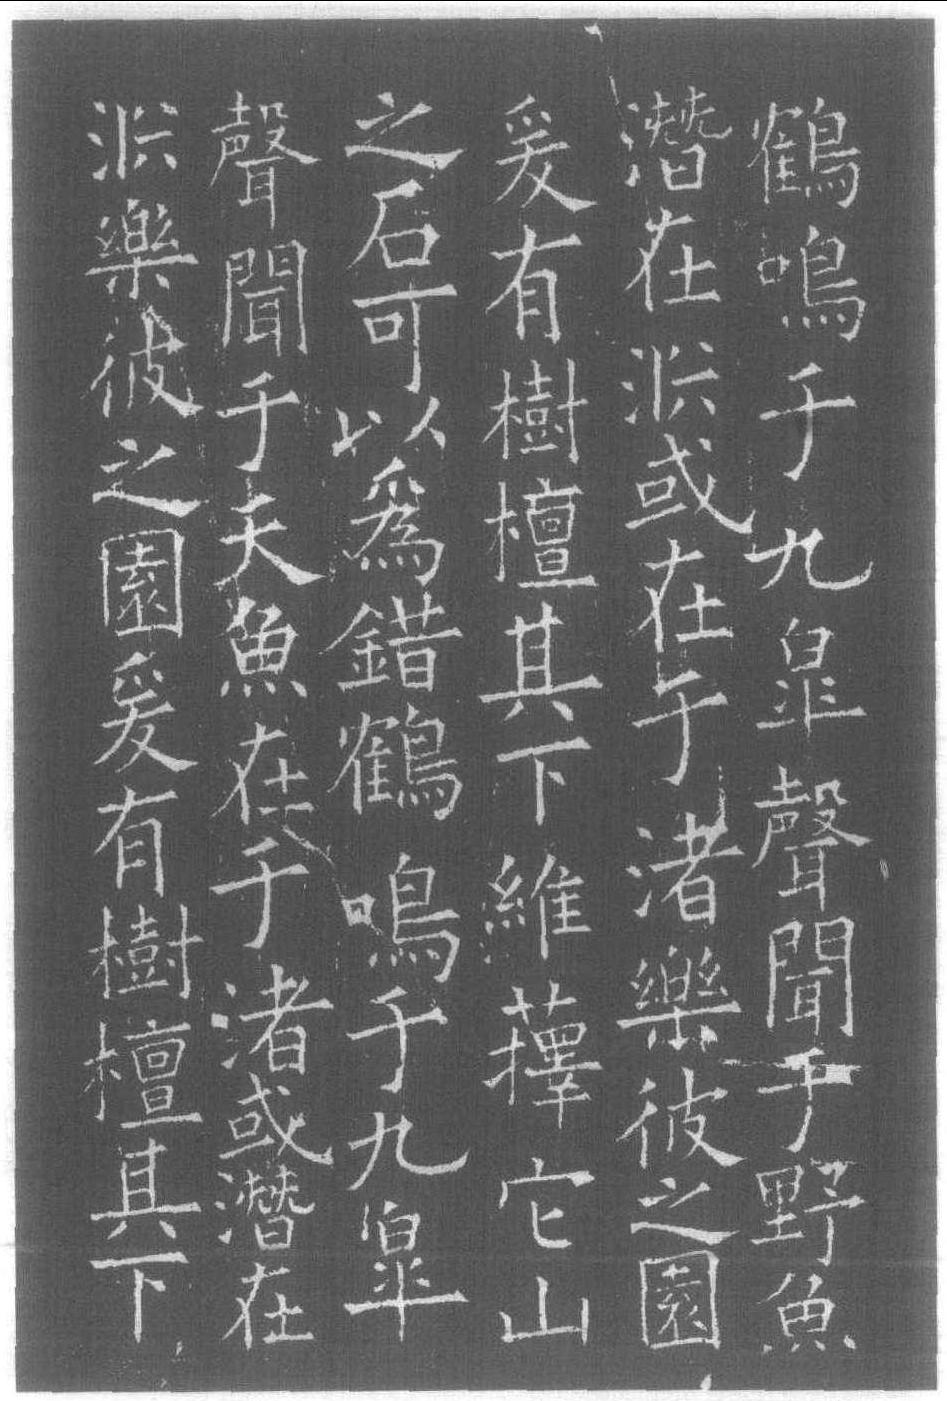 鶴鳴于九皐聲聞于野魚
潛在淵或在于渚樂彼之園
爰有樹檀其下維蘀它山
之石可以爲錯鶴鳴于九皐
聲聞于天魚在于渚或潛在
淵樂彼之園爰有樹檀其下